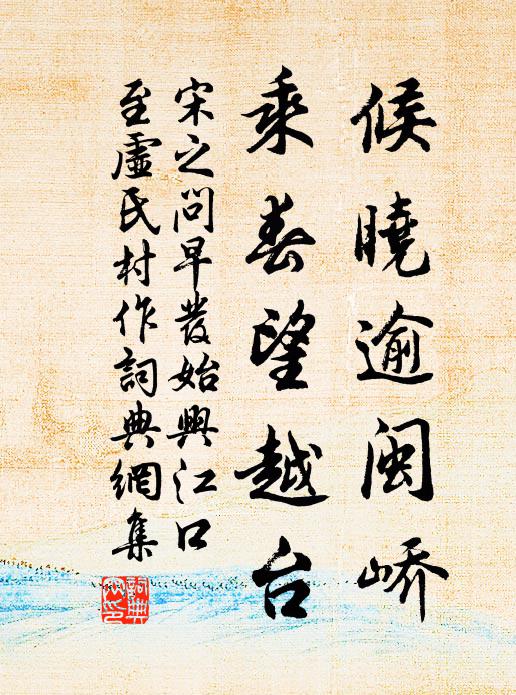 候曉逾閩嶠
乘春望越台
宋之問早發始興江口
至虛氏村作詞典網集